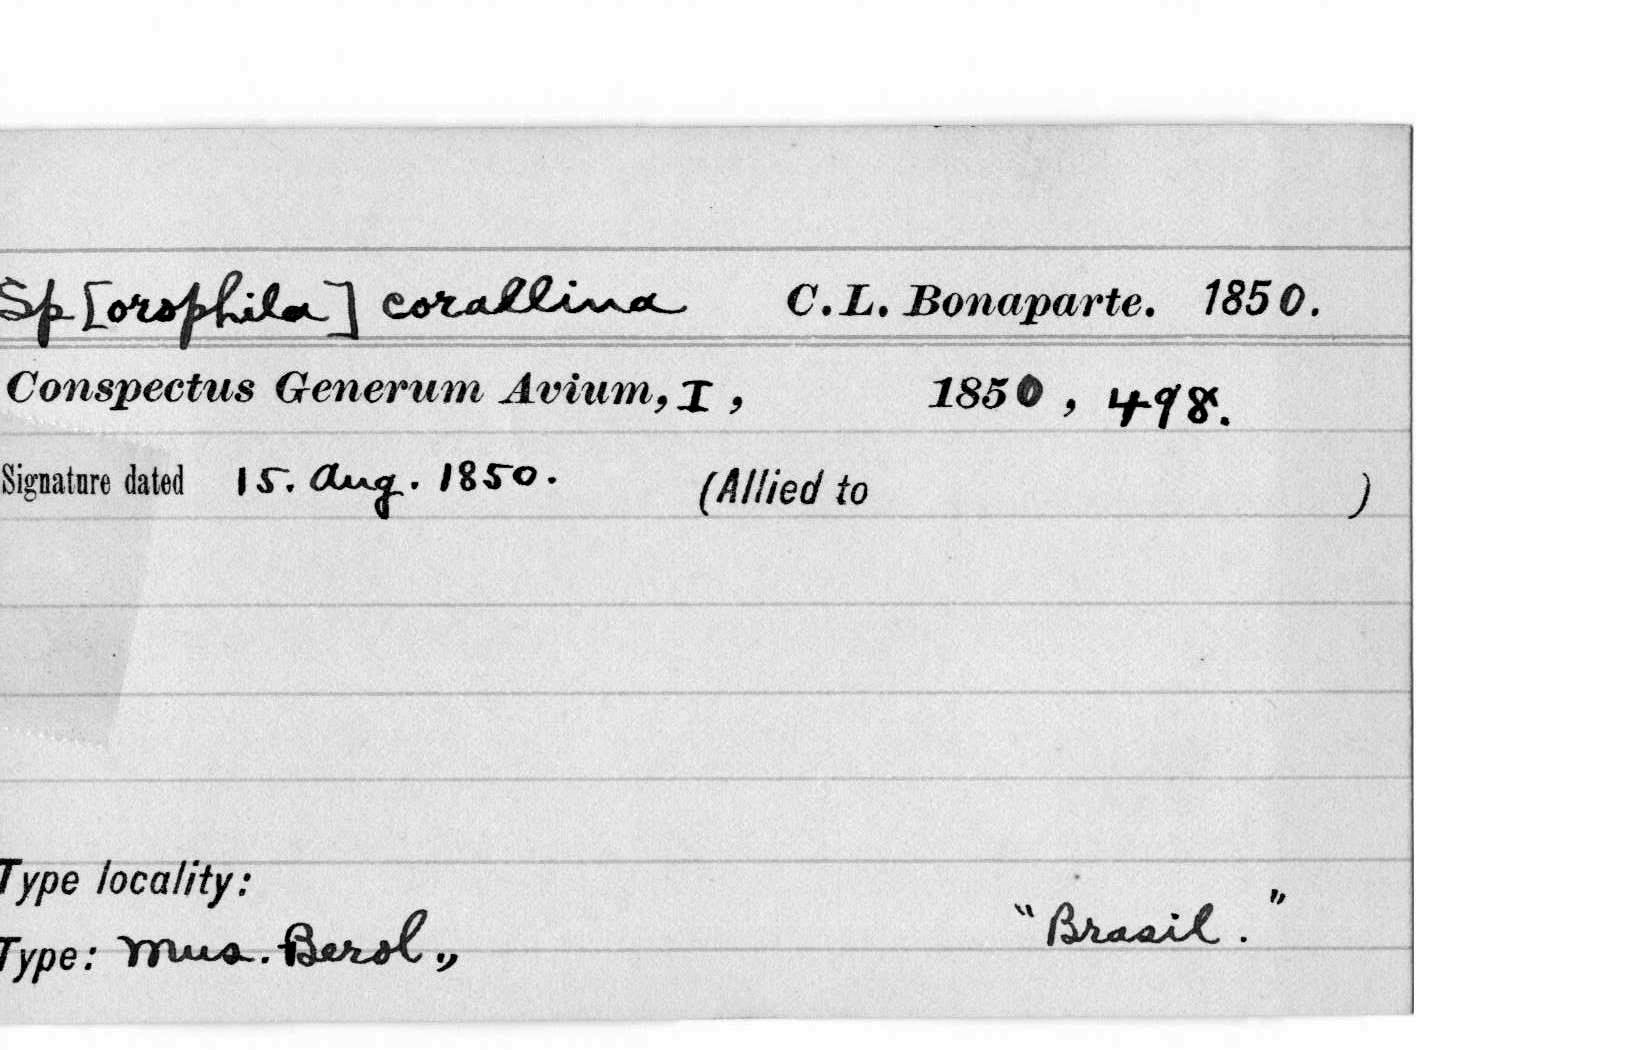 Sp[orophila] corallina C.L. Bonaparte. 1850.
Conspectus Generum Avium, I, 1850, 498.
Signature dated 15. Aug. 1850. (Allied to )
Type locality:
"Brasil."
Type: Mus. Berol.,